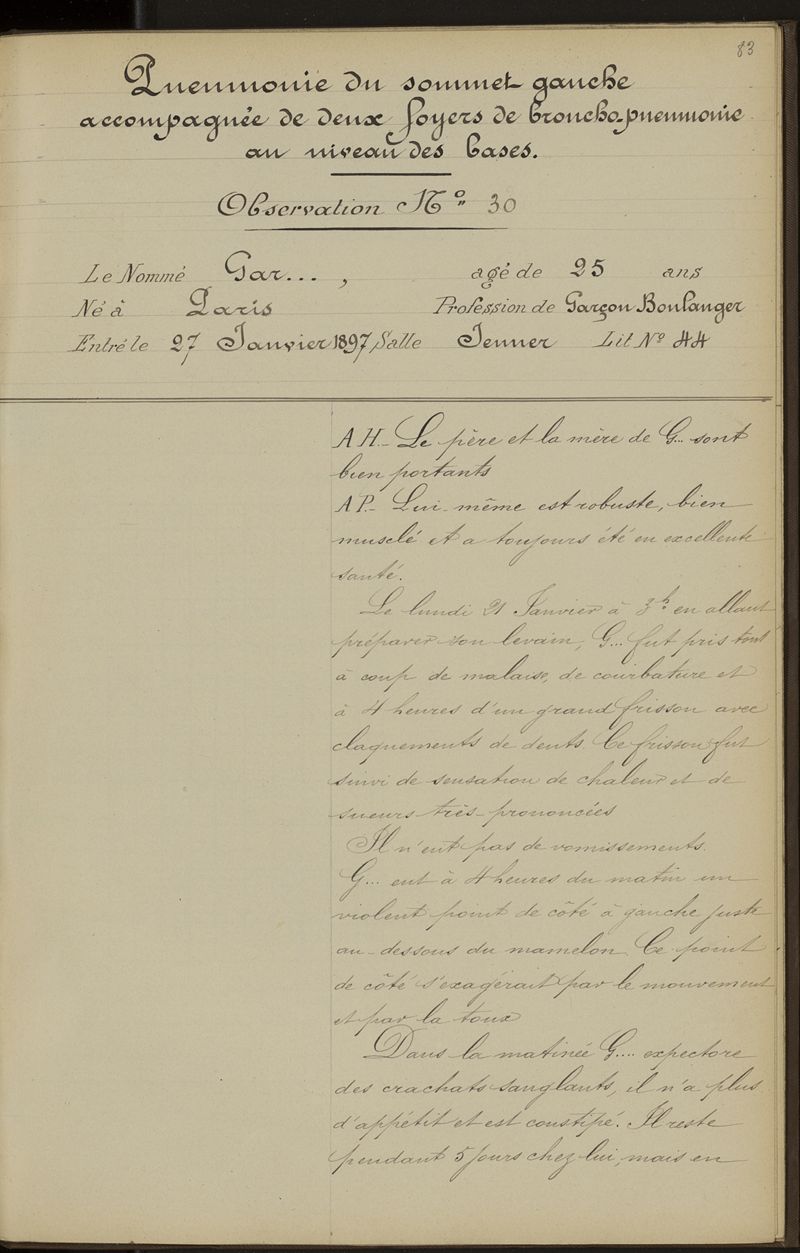 83
Pneumonie du sommet gauche
accompagnée de deux foyers de broncho-pneumonie
au niveau des bases.
Observation No 30
Le Nommé Gar..., agé de 25 ans
Né à Paris Profession de Garçon Boulanger
Entré le 27 Janvier 1897 Salle Jenner Lit No 44
A H.- Le père et la mère de G... sont
bien portants
A P.- Lui-même est robuste, bien
musclé et a toujours été en excellente
santé.
Le lundi 21 Janvier à 3h en allant
préparer son levain, G... fut pris tout
à coup de malaise, de courbature et
à 4 heures d'un grand frisson avec
claquements de dents. Ce frisson fut
suivi de sensation de chaleur et de
sueurs très-prononcées
Il n'eut pas de vomissements.
G... eut à 4 heures du matin un
violent point de côté à gauche juste
au-dessous du mamelon. Ce point
de côté s'exagérait par le mouvement
et par la toux
Dans la matinée G.... expectore
des crachats sanglants, il n'a plus
d'appétit et est constipé. Il reste
pendant 5 jours chez lui, mais en